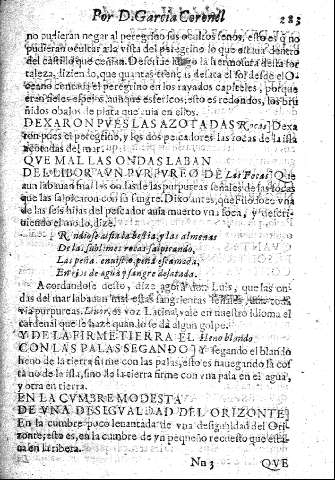 Por D. Garcia Coronel 283
no pudieran negar al peregrino sus ocultos senos, esto es q̃ no
pudieran ocultar a la vista del peregrino lo que estaua dentro
del castillo que ceñian. Descriue luego la hermosura de la for
taleza, diziendo, que quantas trenças desata el sol desde el O-
ceano cencaria el peregrino en los rayados capiteles, porque
eran fieles espejos, aunque esfericos; esto es redondos, los bru
ñidos obalos de plata que auia en ellos.
DEXARON PVES LAS AZOTADAS Rocas] Dexa
ron pues el peregrino, y los dos pescadores las rocas de la isla
açotadas del mar.
QVE MAL LAS ONDAS LABAN
DEL LIBOR AVN PVRPVREO DE Las Focas] Que
aun labauan mal las ondas de las purpureas señales de las focas
que las salpicaron con su sangre. Dixo antes, que Filodoce vna
de las seis hijas del pescador auia muerto vna foca, y descri-
uiendo el modo, dize,
Rindiose al fin la bestia, y las almenas
De las sublimes rocas salpicando,
Las peñas enuistió, peña escamada,
En rios de agua y sangre desatada.
Acordandose desto, dize agora don Luis, que las on-
das del mar labauan mal estas sangrientas señales, aun toda
via purpureas. Liuor, es voz Latina, vale en nuestro idioma el
cardenal que se haze quando se dà algun golpe.
Y DE LA FIRME TIERRA EL Heno blando
CON LAS PALAS SEGANDO] Y segando el blando
heno de la tierra firme con las palas, esto es nauegando la cos
ta no de la isla, sino de la tierra firme con vna pala en el agua,
y otra en tierra.
EN LA CVMBRE MODESTA
DE VNA DESIGVALDAD DEL ORIZONTE]
En la cumbre poco leuantada de vna desigualdad del Ori-
zonte, esto es, en la cumbre de vn pequeño recuesto que esta-
ua en la ribera.
Nn 3 QVE